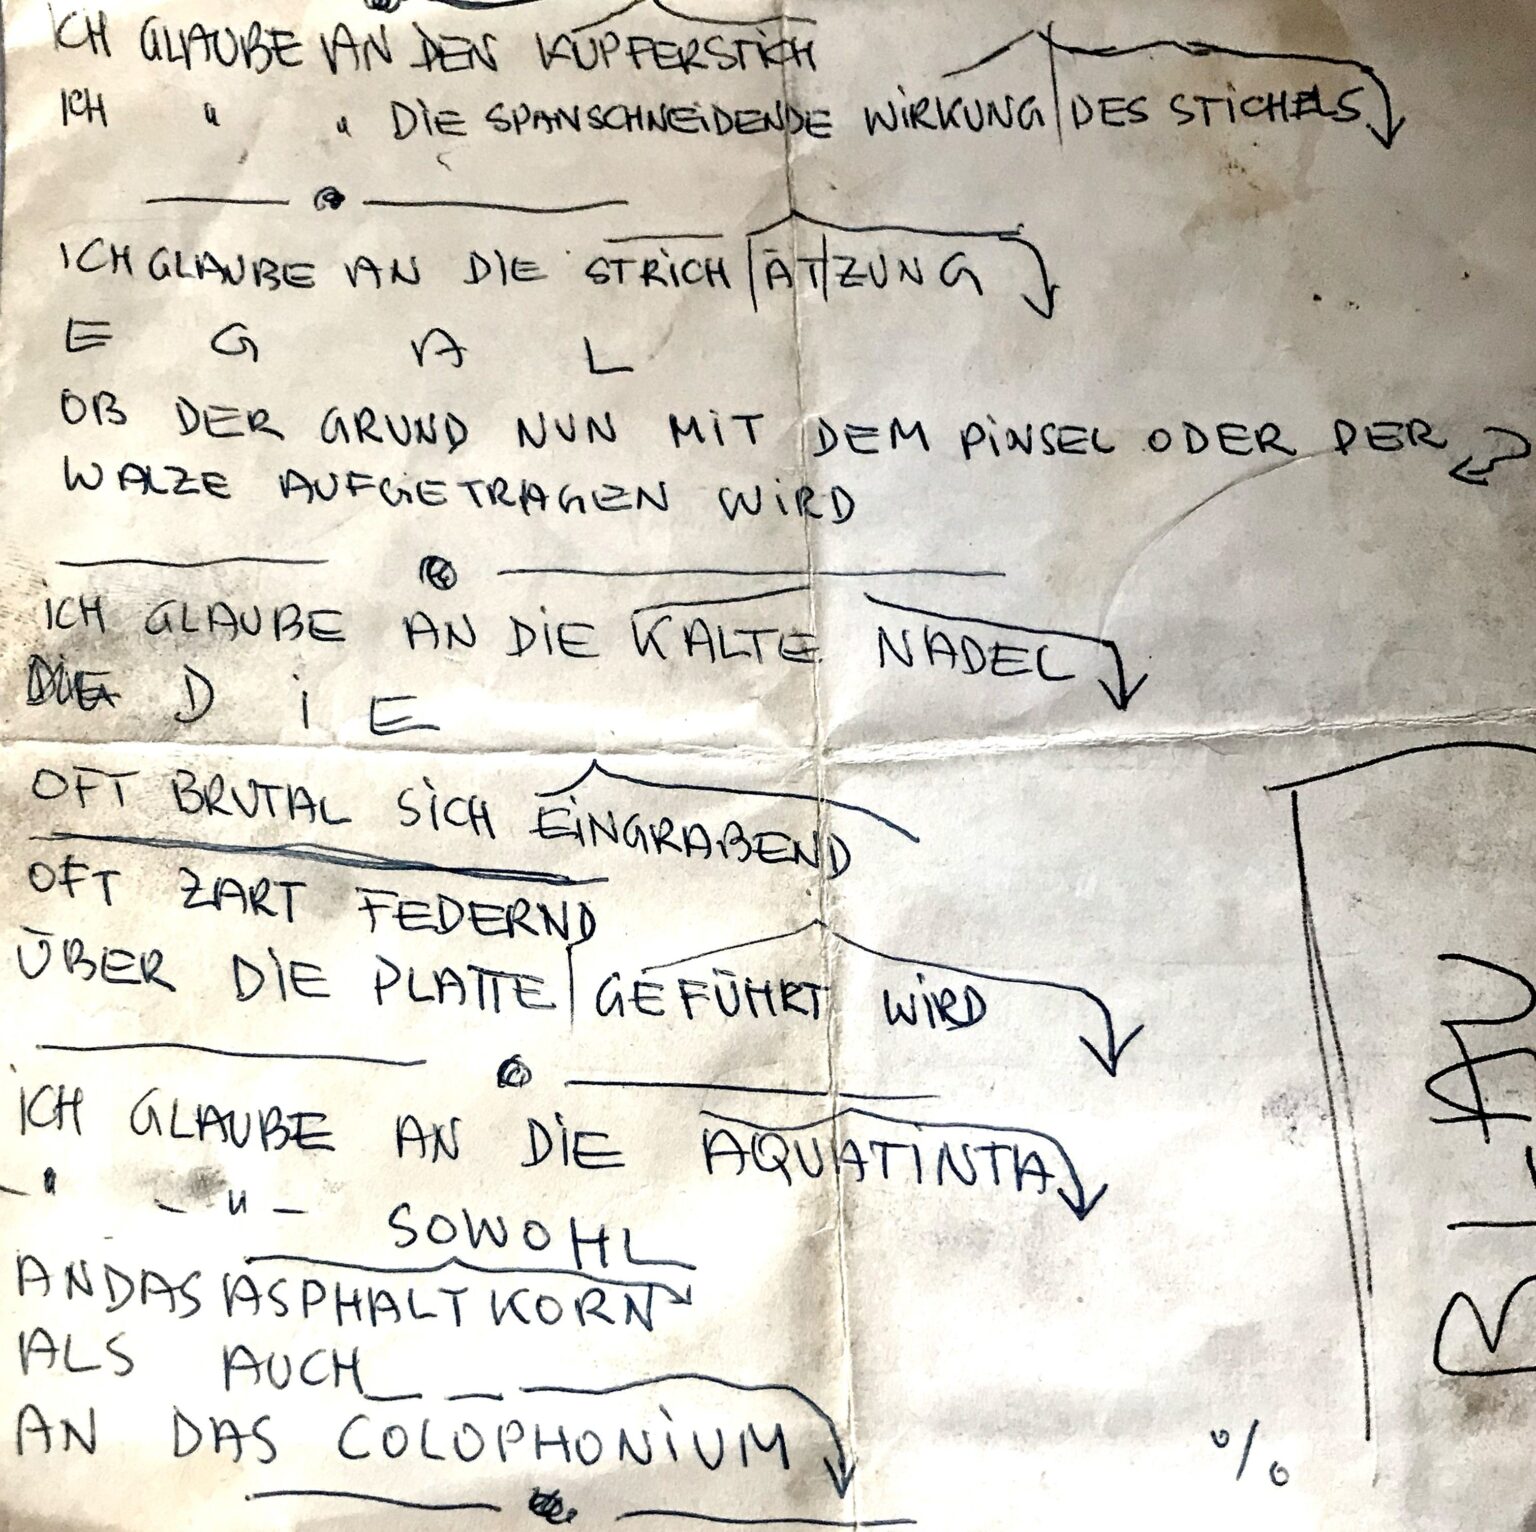 ICH GLAUBE AN DEN KUPFERSTICH
ICH " " DIE SPANSCHNEIDENDE WIRKUNG | DES STICHELS
ICH GLAUBE AN DIE STRICH|ÄT|ZUNG
E G A L
OB DER GRUND NUN MIT DEM PINSEL ODER DER
WALZE AUFGETRAGEN WIRD
ICH GLAUBE AN DIE KALTE NADEL
D I E
OFT BRUTAL SICH EINGRABEND
OFT ZART FEDERND
ÜBER DIE PLATTE | GEFÜHRT WIRD
ICH GLAUBE AN DIE AQUATINTA
– " – " – SOWOHL
AN DAS ASPHALTKORN
ALS AUCH
AN DAS COLOPHONIUM
%
BLAU